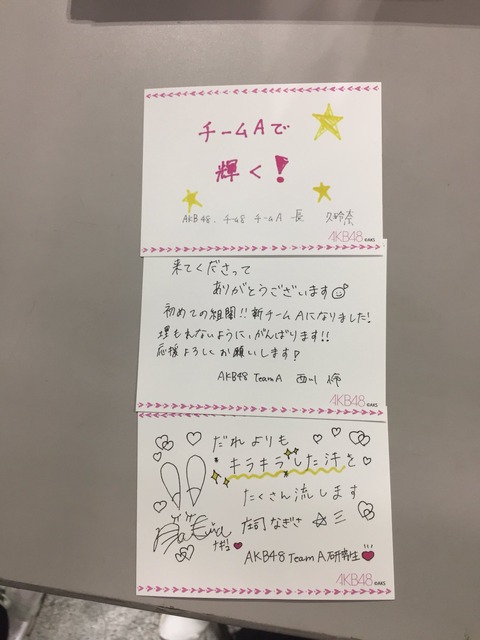 チームAで
輝く!
AKB48、チーム8 チームA 長 久玲奈
AKB48 ©AKS
来てくださって
ありがとうございます
初めての組閣!! 新チームAになりました!
埋もれないように、がんばります!!
応援よろしくお願いします!
AKB48 TeamA 西川 怜
AKB48 ©AKS
だれよりも
キラキラした汗を
たくさん流します
庄司なぎさ ☆彡
ナギュ
AKB48 Team A 研究生
AKB48 ©AKS